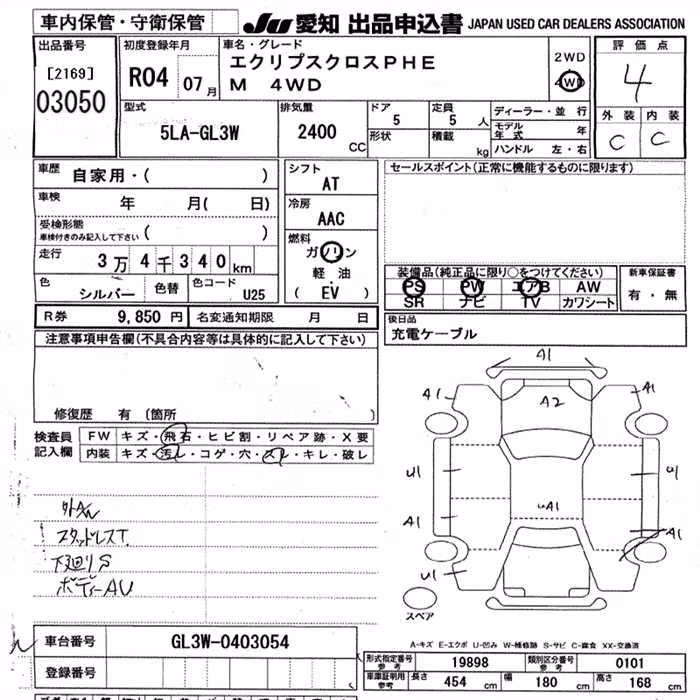 車内保管・守衛保管
JU 愛知 出品申込書 JAPAN USED CAR DEALERS ASSOCIATION
出品番号
[2169]
03050
初度登録年月
R04 07月
車名・グレード
エクリプスクロスPHE
M 4WD
2WD
4WD
評価点
4
外装 内装
C C
型式
5LA-GL3W
排気量
2400
CC
ドア
5
定員
5人
形状
積載
kg
ディーラー・並行
モデル年式 年
ハンドル 左・右
車歴 自家用・( )
車検 年 月( 日)
受検形態
車検付きのみ記入して下さい ( )
走行 3万4千340km
色 シルバー 色替 色コード U25
シフト
AT
冷房
AAC
燃料
ガソリン
軽油
(EV)
セールスポイント(正常に機能するものに限ります)
装備品(純正品に限り○をつけてください)
PS PW エアB AW
SR ナビ TV カワシート
新車保証書
有・無
R券 9,850円 名変通知期限 月 日
後日品
充電ケーブル
注意事項申告欄(不具合内容等は具体的に記入して下さい)
修復歴 有 (箇所 )
検査員記入欄
FW キズ・飛石・ヒビ割・リペア跡・X要
内装 キズ・汚レ・コゲ・穴・スレ・キレ・破レ
スタッドレスT
下廻りS
ボディーAU
A1
A1 A2 A1
U1 U1
A1 A1
U1
スペア
A-キズ E-エクボ U-凹み W-補修跡 S-サビ C-腐食 XX-交換済
車台番号 GL3W-0403054
登録番号
形式指定番号 参考 19898 類別区分番号 参考 0101
車庫証明用 参考 長さ 454cm 幅 180cm 高さ 168cm